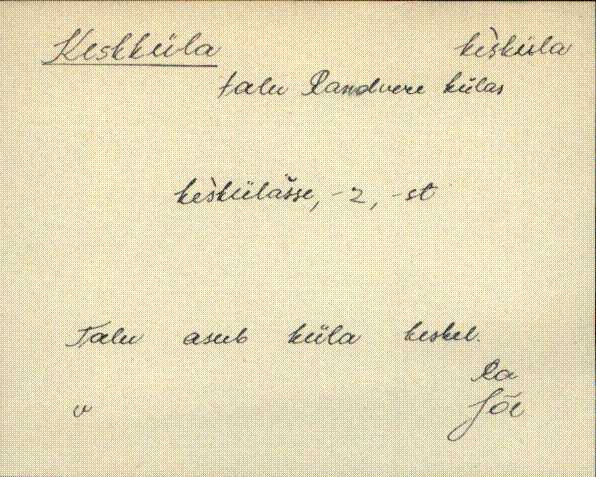 Keskküla kèsküla
talu Randvere külas
kèskülàsse, -z, -st
Talu asub küla keskel.
Ra
v Jõe